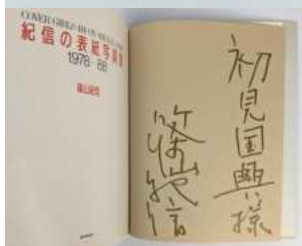 紀信の表紙写真館
1978-88
篠山紀信
初見国興様
篠山紀信